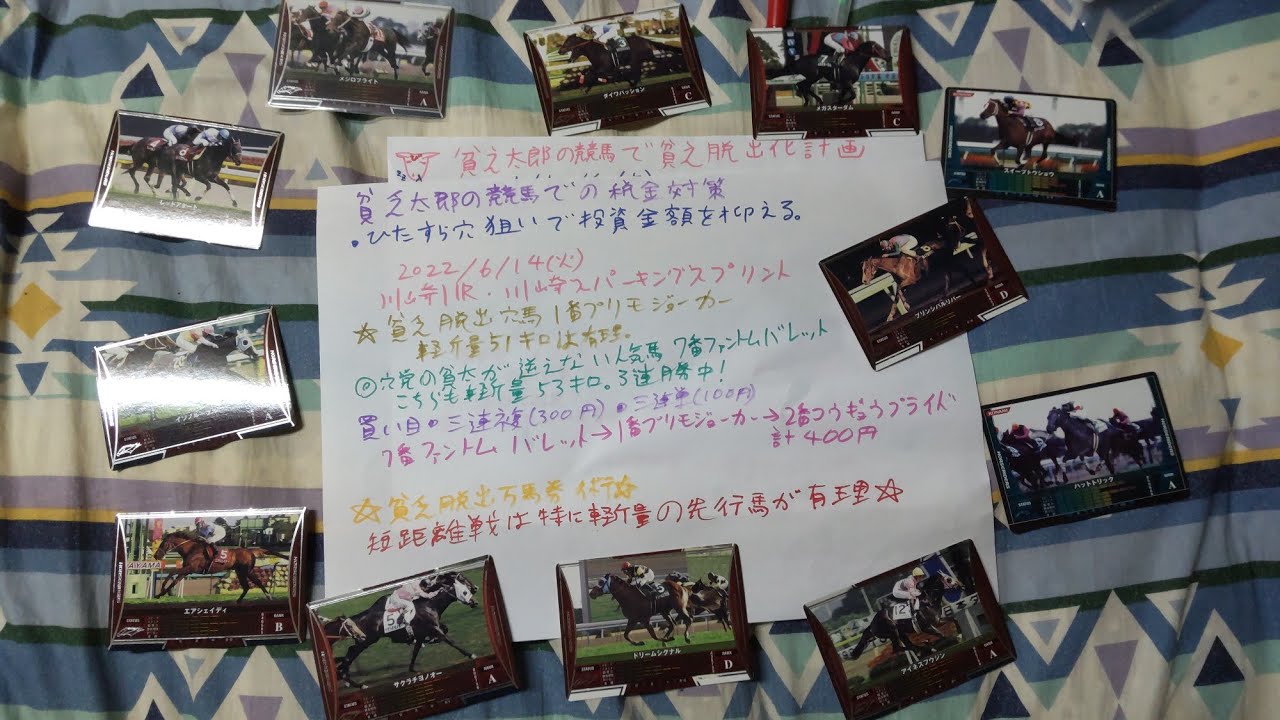 メンロブライト
A
ダイワパッション
C
メガスターダム
C
スイープトウショウ
A
貧乏太郎の競馬で貧乏脱出化計画
貧乏太郎の競馬での税金対策
・ひたすら穴狙いで投資金額を抑える。
2022/6/14(火)
川崎11R・川崎スパーキングスプリント
☆貧乏脱出穴馬1番プリモジョーカー
軽斤量51キロは有理。
◎穴党の貧太が逆えない人気馬7番ファントムバレット
こちらも軽斤量53キロ。3連勝中!
買い目・三連複(300円)・三連単(100円)
7番ファントムバレット→1番プリモジョーカー→2番コウギョウブライド
計400円
☆貧乏脱出万馬券作☆
短距離戦は特に軽斤量の先行馬が有理☆
プリンシパルリバー
D
KONAMI
ハットトリック
A
AYAMA
5
エアシェイディ
B
5
サクラチヨノオー
A
ドリームシグナル
D
12
アイネスフウジン
A